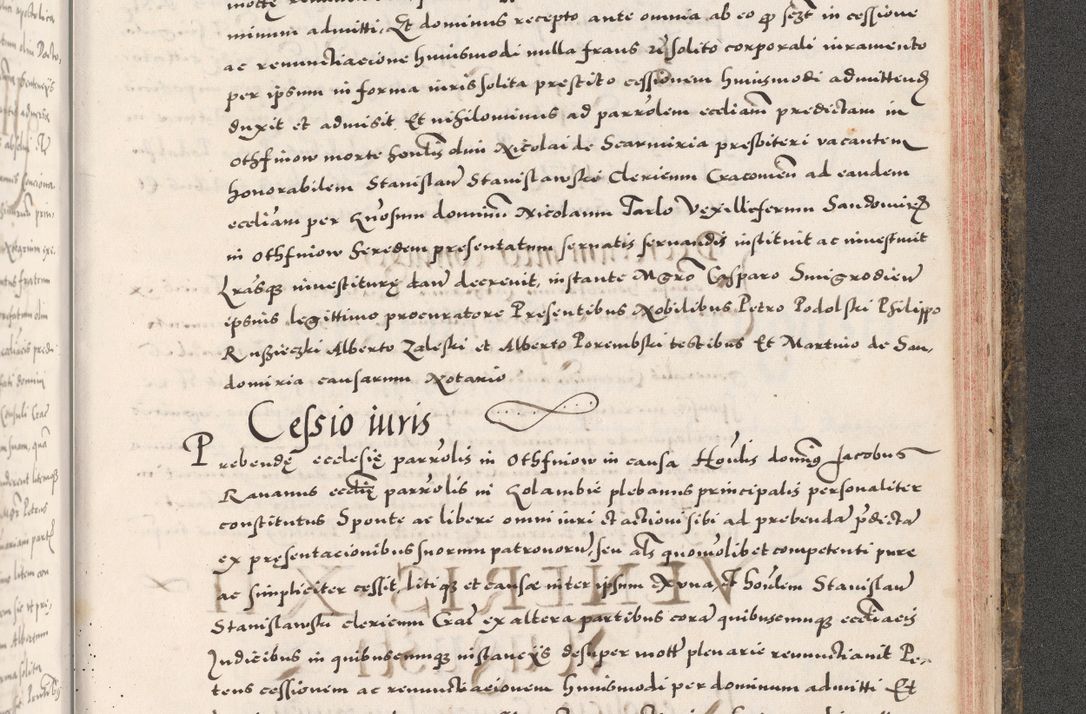 minum admitti, Et dominus recepto ante omnia ab eo q̃ sezt in cessione
ac renunctiacione huiusmodi nulla fraus et solito corporali iuramento
per ipsum in forma iuris solita prestito cessionem huiusmodi admittend
duxit et admisit Et nihilominus ad parrolem eccliam predictam in
Othfinow morte honlis dni Nicolai de Scarmiria presbiteri vacantem
honorabilem Stanislau Stanislawski Clericum Cracouien ad eandem
eccliam per Gnosum dominum Nicolaum Tarlo Vexilliferum Sandomirz
in Othfinow heredem presentatum seruatis seruandis instituit ac inuestiuit
Lrasq inuestiturę dau decreuit, instante Mgro Casparo Smigrodien
ipsius legittimo procuratore Presentibus Nobilibus Petro Podolski Philippo
Ruszieczki Alberto Zaleski et Alberto Porembski testibus Et Martino de San,
domiria causarum Notario
Cessio iuris
Prebendę ecclesię parrolis in Othfinow in causa Houlis dominus Jacobus
Rauanus ecclię parrolis in Golambie plebanus principalis personaliter
constitutus Sponte ac libere omni iuri et actioni sibi ad prebenda pdicta
ex pręsentacionibus suorum patronoru, seu als quomolibet competenti pure
ac simpliciter cessit, litiqz et causæ inter ipsum Ex vna, et houlem Stanislau
Stanislawski clericum Crac ex altera partibus cora quibuscumqz eccliacis
Iudicibus in quibuscumqz instancijs desuper mott plenarie renunctiauit Pe,
tens cessionem ac renunctiacionem huiusmodi per dominum admitti Et